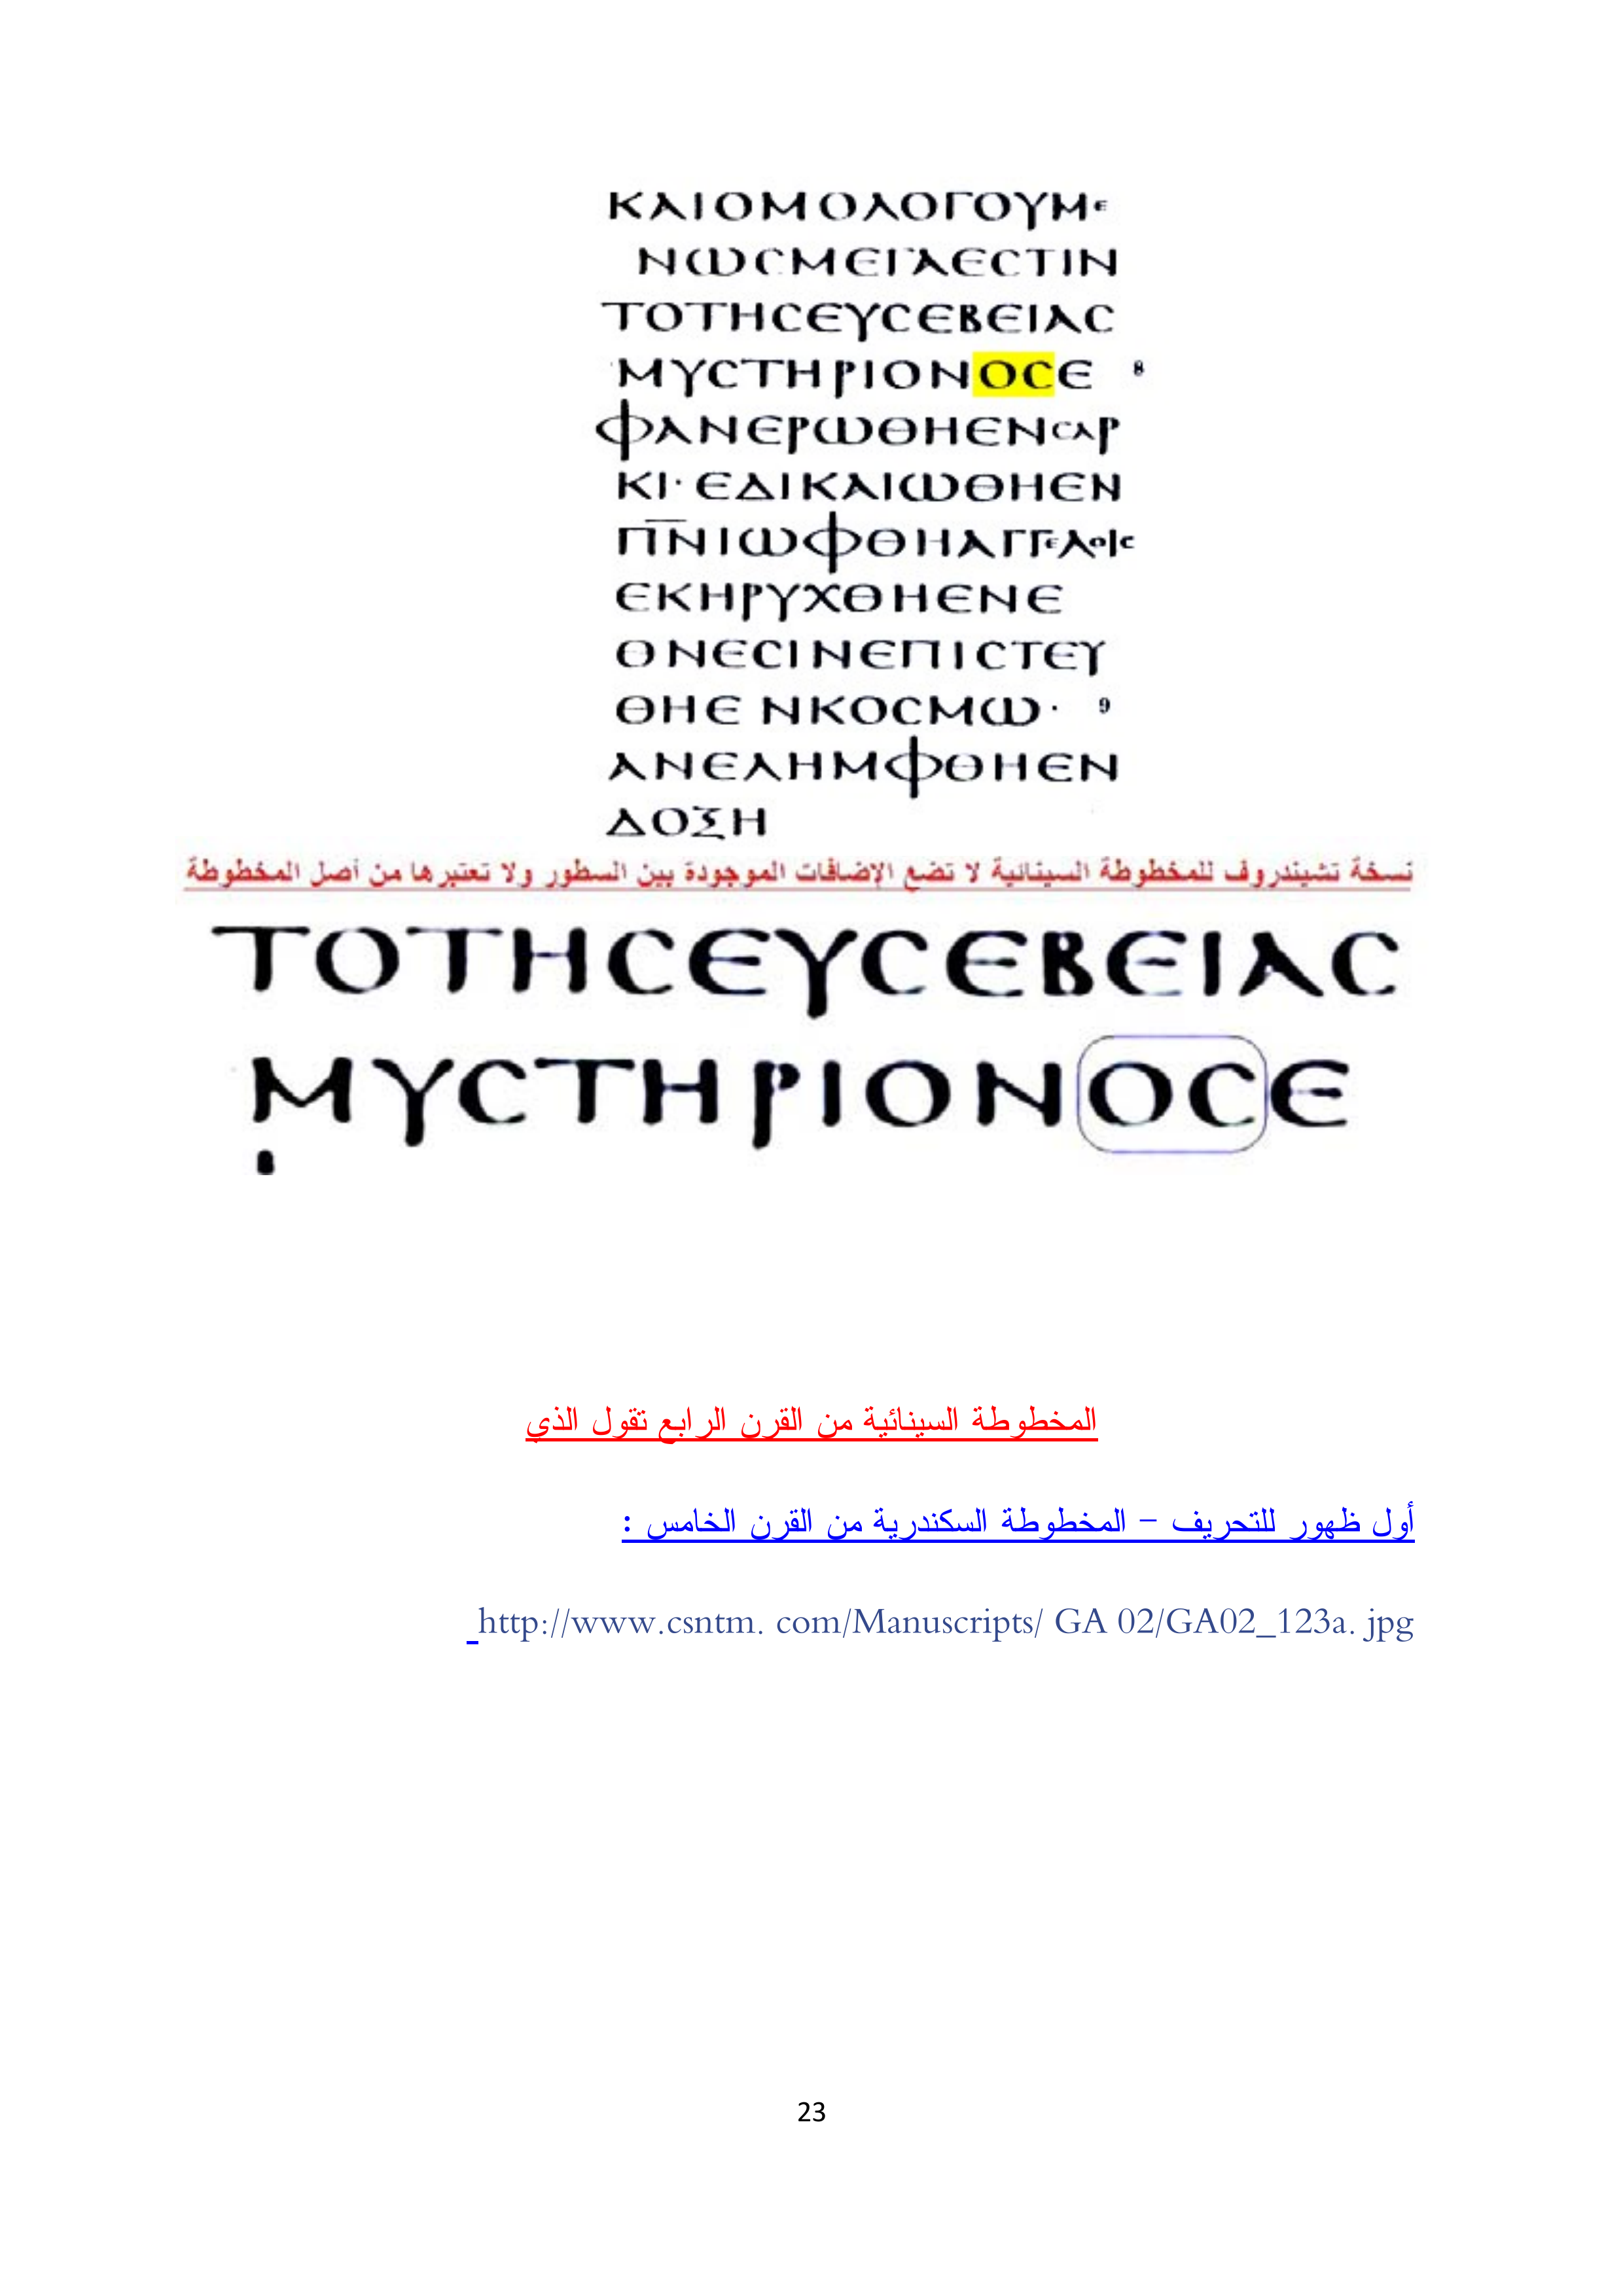 ΚΑΙΟΜΟΛΟΓΟΥΜΕ
ΝωϹΜΕΓΑΕϹΤΙΝ
ΤΟΤΗϹΕΥϹΕΒΕΙΑϹ
ΜΥϹΤΗΡΙΟΝΟϹΕ 8
ΦΑΝΕΡωΘΗΕΝϹΑΡ
ΚΙ· ΕΔΙΚΑΙωΘΗΕΝ
Π̅Ν̅ΙωΦΘΗΑΓΓΕΛΟΙϹ
ΕΚΗΡΥΧΘΗΕΝΕ
ΘΝΕϹΙΝΕΠΙϹΤΕΥ
ΘΗΕΝΚΟϹΜω· 9
ΑΝΕΛΗΜΦΘΗΕΝ
ΔΟΞΗ
نسخة تشيندروف للمخطوطة السينائية لا تضع الإضافات الموجودة بين السطور ولا تعتبرها من أصل المخطوطة
ΤΟΤΗϹΕΥϹΕΒΕΙΑϹ
ΜΥϹΤΗΡΙΟΝΟϹΕ
المخطوطة السينائية من القرن الرابع تقول الذي
أول ظهور للتحريف – المخطوطة السكندرية من القرن الخامس :
http://www.csntm. com/Manuscripts/ GA 02/GA02_123a. jpg
23